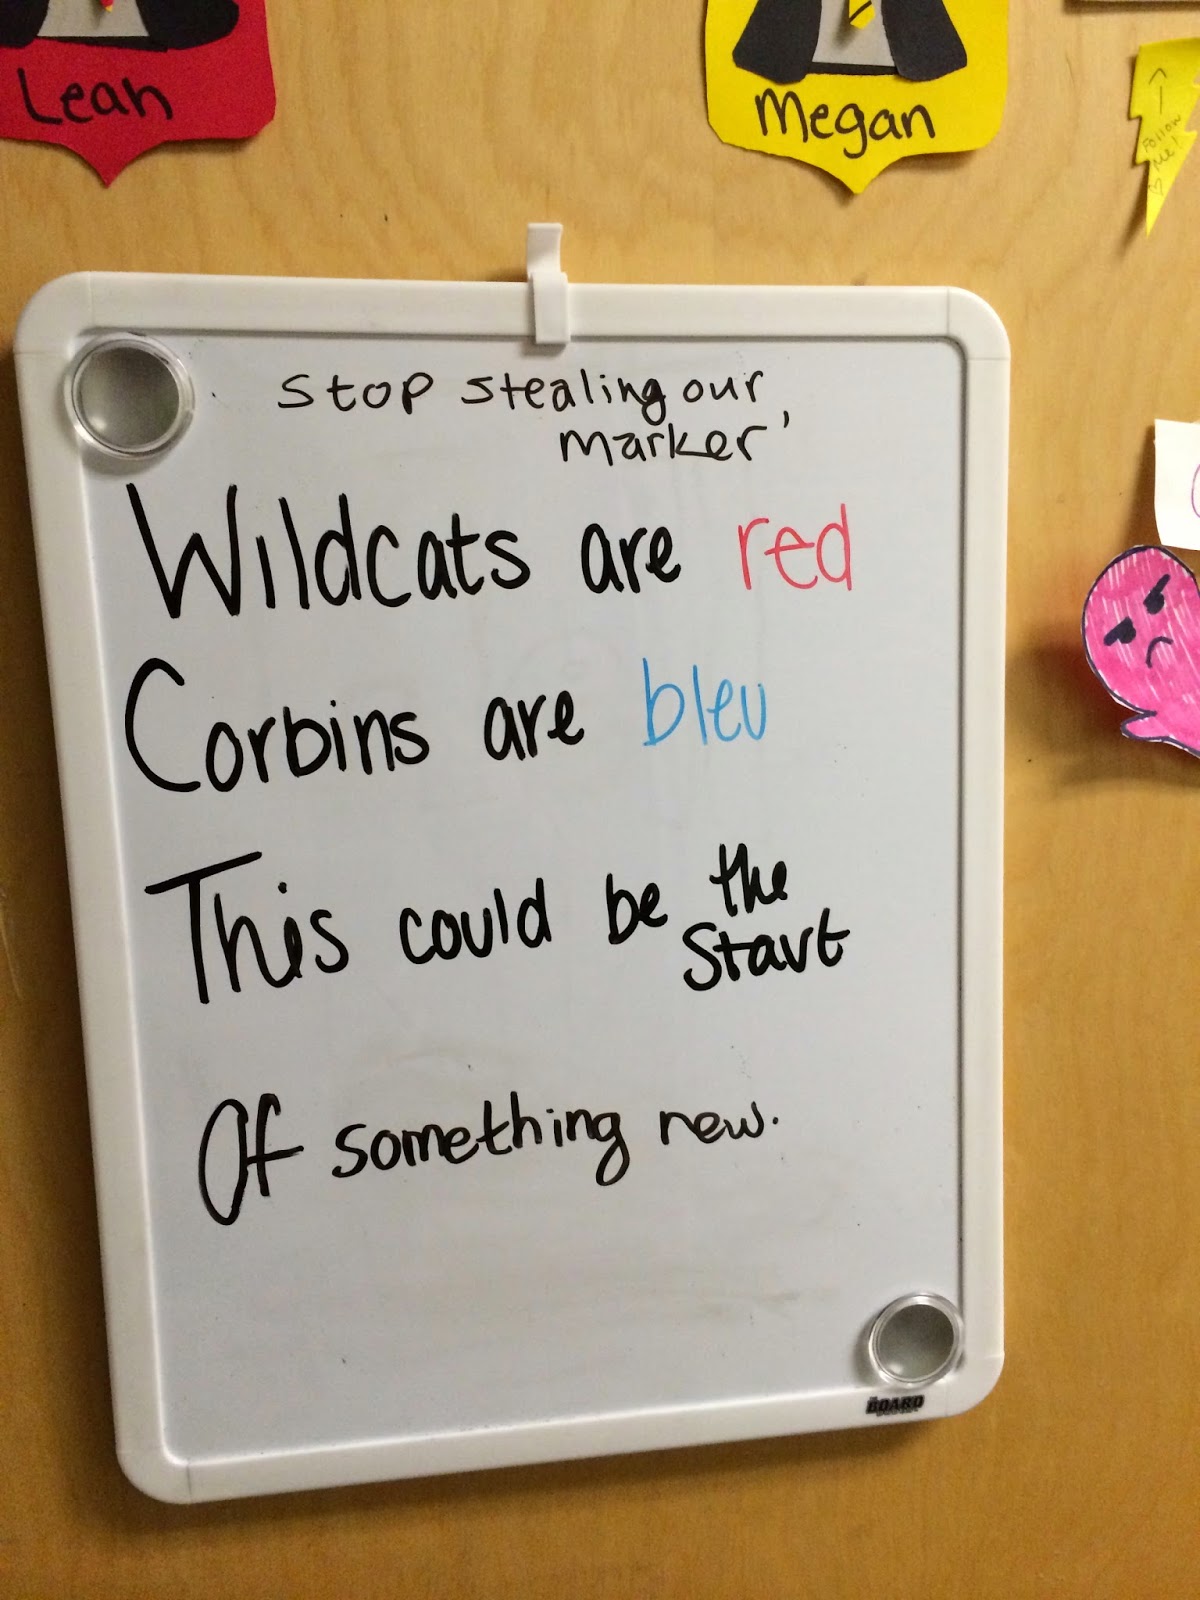 Leah
Megan
Follow
Me!
Stop stealing our
marker
Wildcats are red
Corbins are bleu
This could be the
start
Of something new.
THE BOARD